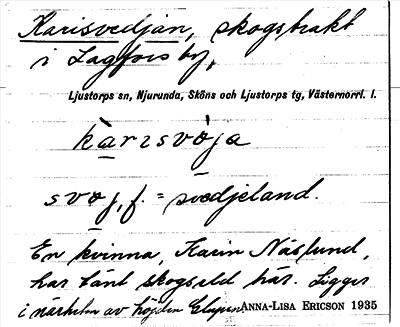 Karisvedjan, skogstrakt
i Lagfors by,
Ljustorps sn, Njurunda, Sköns och Ljustorps tg, Västernorrl. l.
kàrɪsvò̱ja
svo̱j, f. = svedjeland.
En kvinna, Karin Näslund,
har tänt skogseld här. Ligger
i närheten av höjden ANNA-LISA ERICSON 1935